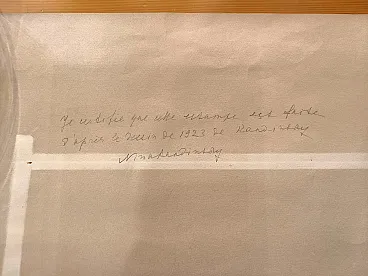 Je certifie que cette estampe est faite
d'après le dessin de 1923 de Kandinsky
Nina Kandinsky